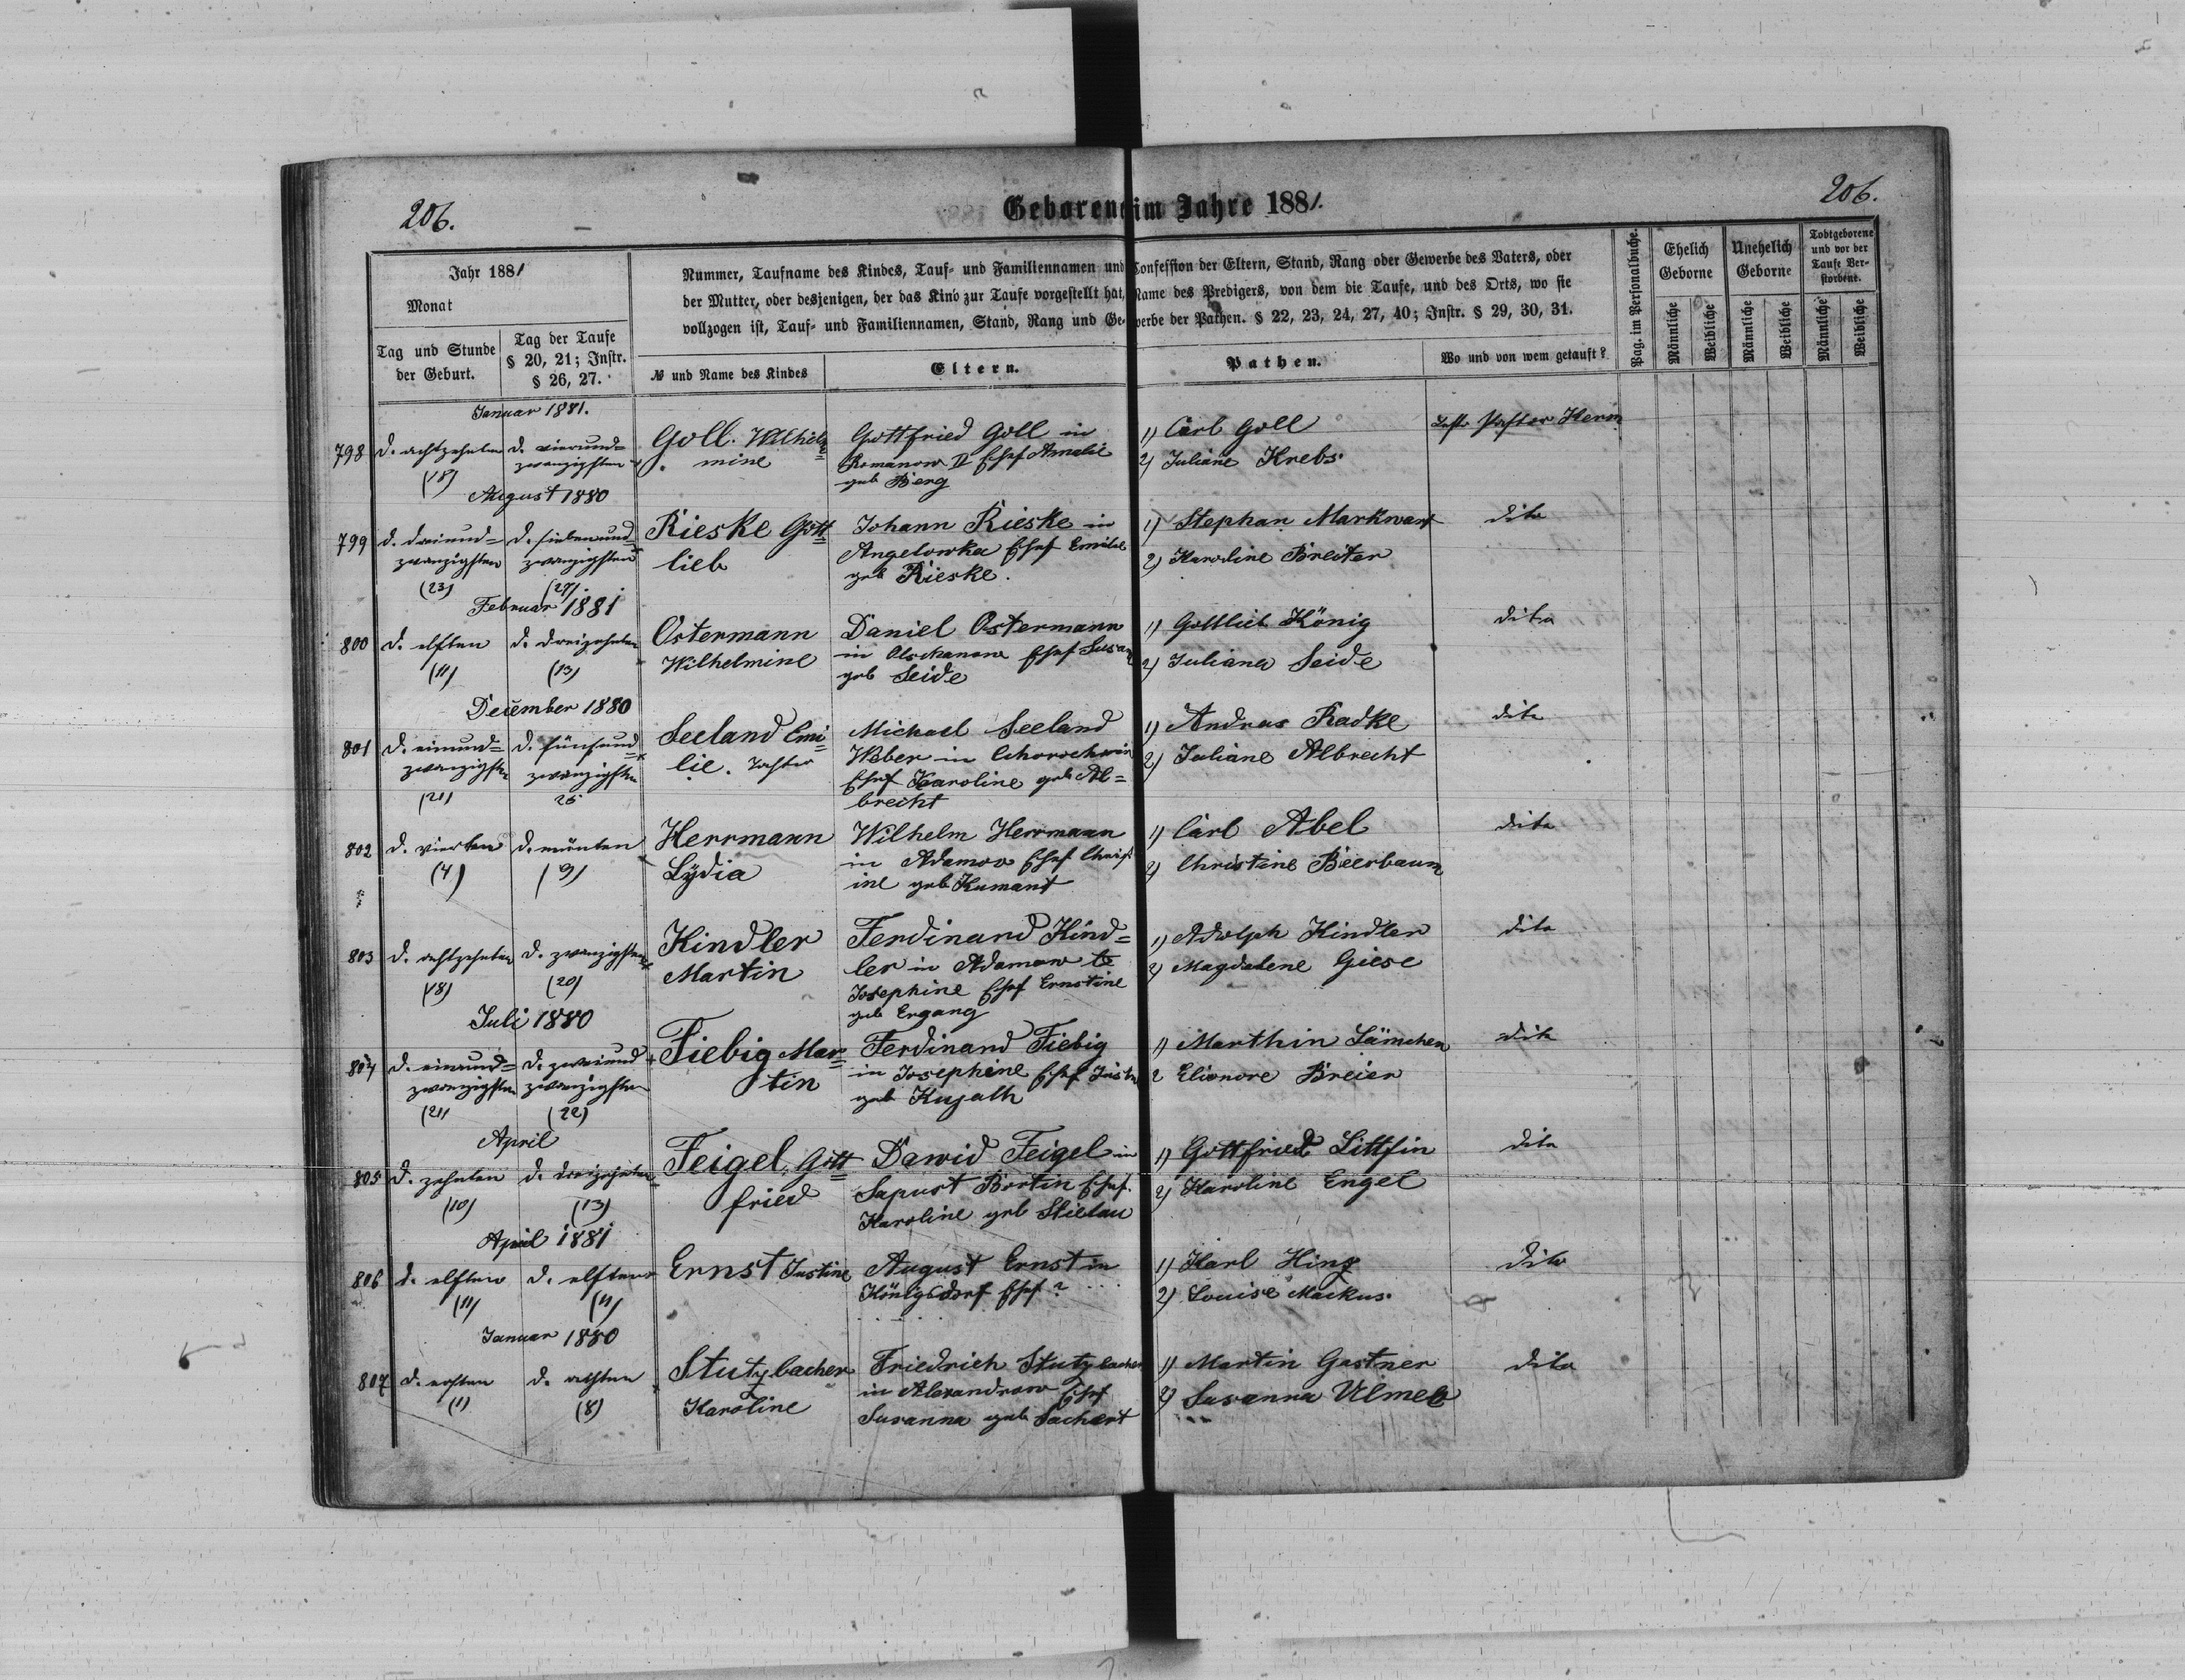 206.
Geborene im Jahre 1881.
206.
Jahr 1881
Monat
Tag und Stunde der Geburt.
Tag der Taufe § 20, 21; Instr. § 26, 27.
Nummer, Taufname des Kindes, Tauf- und Familiennamen und Confession der Eltern, Stand, Rang oder Gewerbe des Vaters, oder
der Mutter, oder desjenigen, der das Kind zur Taufe vorgestellt hat, Name des Predigers, von dem die Taufe, und des Orts, wo sie
vollzogen ist, Tauf- und Familiennamen, Stand, Rang und Gewerbe der Pathen. § 22, 23, 24, 27, 40; Instr. § 29, 30, 31.
№ und Name des Kindes
Eltern.
Pathen.
Wo und von wem getauft?
Pag. im Personalbuche.
Ehelich Geborne
Unehelich Geborne
Todtgeborene und vor der Taufe Verstorbene.
Männliche
Weibliche
Männliche
Weibliche
Männliche
Weibliche
Januar 1881.
798
d. achtzehnten
(18)
d. vierund=
zwanzigsten
Goll. Wilhel=
mine
Gottfried Goll in
Romanow II Ehef Amalie
geb Berg
1) Carl Goll
2) Juliane Krebs.
Pastor Herm
August 1880
799
d. dreiund=
zwanzigsten
(23)
d. siebenund=
zwanzigsten
(27).
Rieske Gott=
lieb
Johann Rieske in
Angelowka Ehef Emilie
geb Rieske.
1) Stephan Markwart
2) Karoline Breiter
dito
Februar 1881
800
d. elften
(11)
d. dreizehnten
(13)
Ostermann
Wilhelmine
Daniel Ostermann
in Olschanow Ehef Susan
geb Seide
1) Gottlieb König
2) Juliana Seide
dito
December 1880
801
d. einund=
zwanzigsten
(21)
d. fünfund=
zwanzigsten
25
Seeland Emi=
lie.
Michael Seeland
Weber in
Ehef Karoline geb Al=
brecht
1) Andreas Radke
2) Juliane Albrecht
dito
802
d. vierten
(4)
d. neunten
(9)
Herrmann
Lydia
Wilhelm Herrmann
in Adamow Ehef Christ
ine geb Kumant
1) Carl Abel
2) Christine Bierbaum
dito
803
d. achtzehnten
(18)
d. zwanzigsten
(20)
Kindler
Martin
Ferdinand Kind=
ler in Adamow
Josephine Ehef Ernstine
geb Ergang
1) Adolph Kindler
2) Magdalene Giese
dito
Juli 1880
804
d. einund=
zwanzigsten
(21)
d. zweiund
zwanzigsten
(22)
Fiebig Mar=
tin
Ferdinand Fiebig
in Josephine Ehef Justi
geb Kujath
1) Marthin Lämchen
2 Elionore Breier
dito
April
805
d. zehnten
(10)
d. dreizehnten
(13)
Feigel, Gott=
fried
Dawid Feigel in
Sapust Bortin Ehef.
Karoline geb Stielau
1) Gottfried Littfin
2) Karoline Engel
dito
April 1881
806
d. elften
(11)
d. elften
(11)
Ernst Justine
August Ernst in
Königsdorf Ehef ?
1) Karl Hinz
2) Louise Markus.
dito
Januar 1880
807
d. ersten
(1)
d. achten
(8)
Stutzbacher
Karoline
Friedrich Stutzbacher
in Alexandrow Ehef
Susanna geb Sachert
1) Martin Gastner
2) Susanna Ulmer
dito